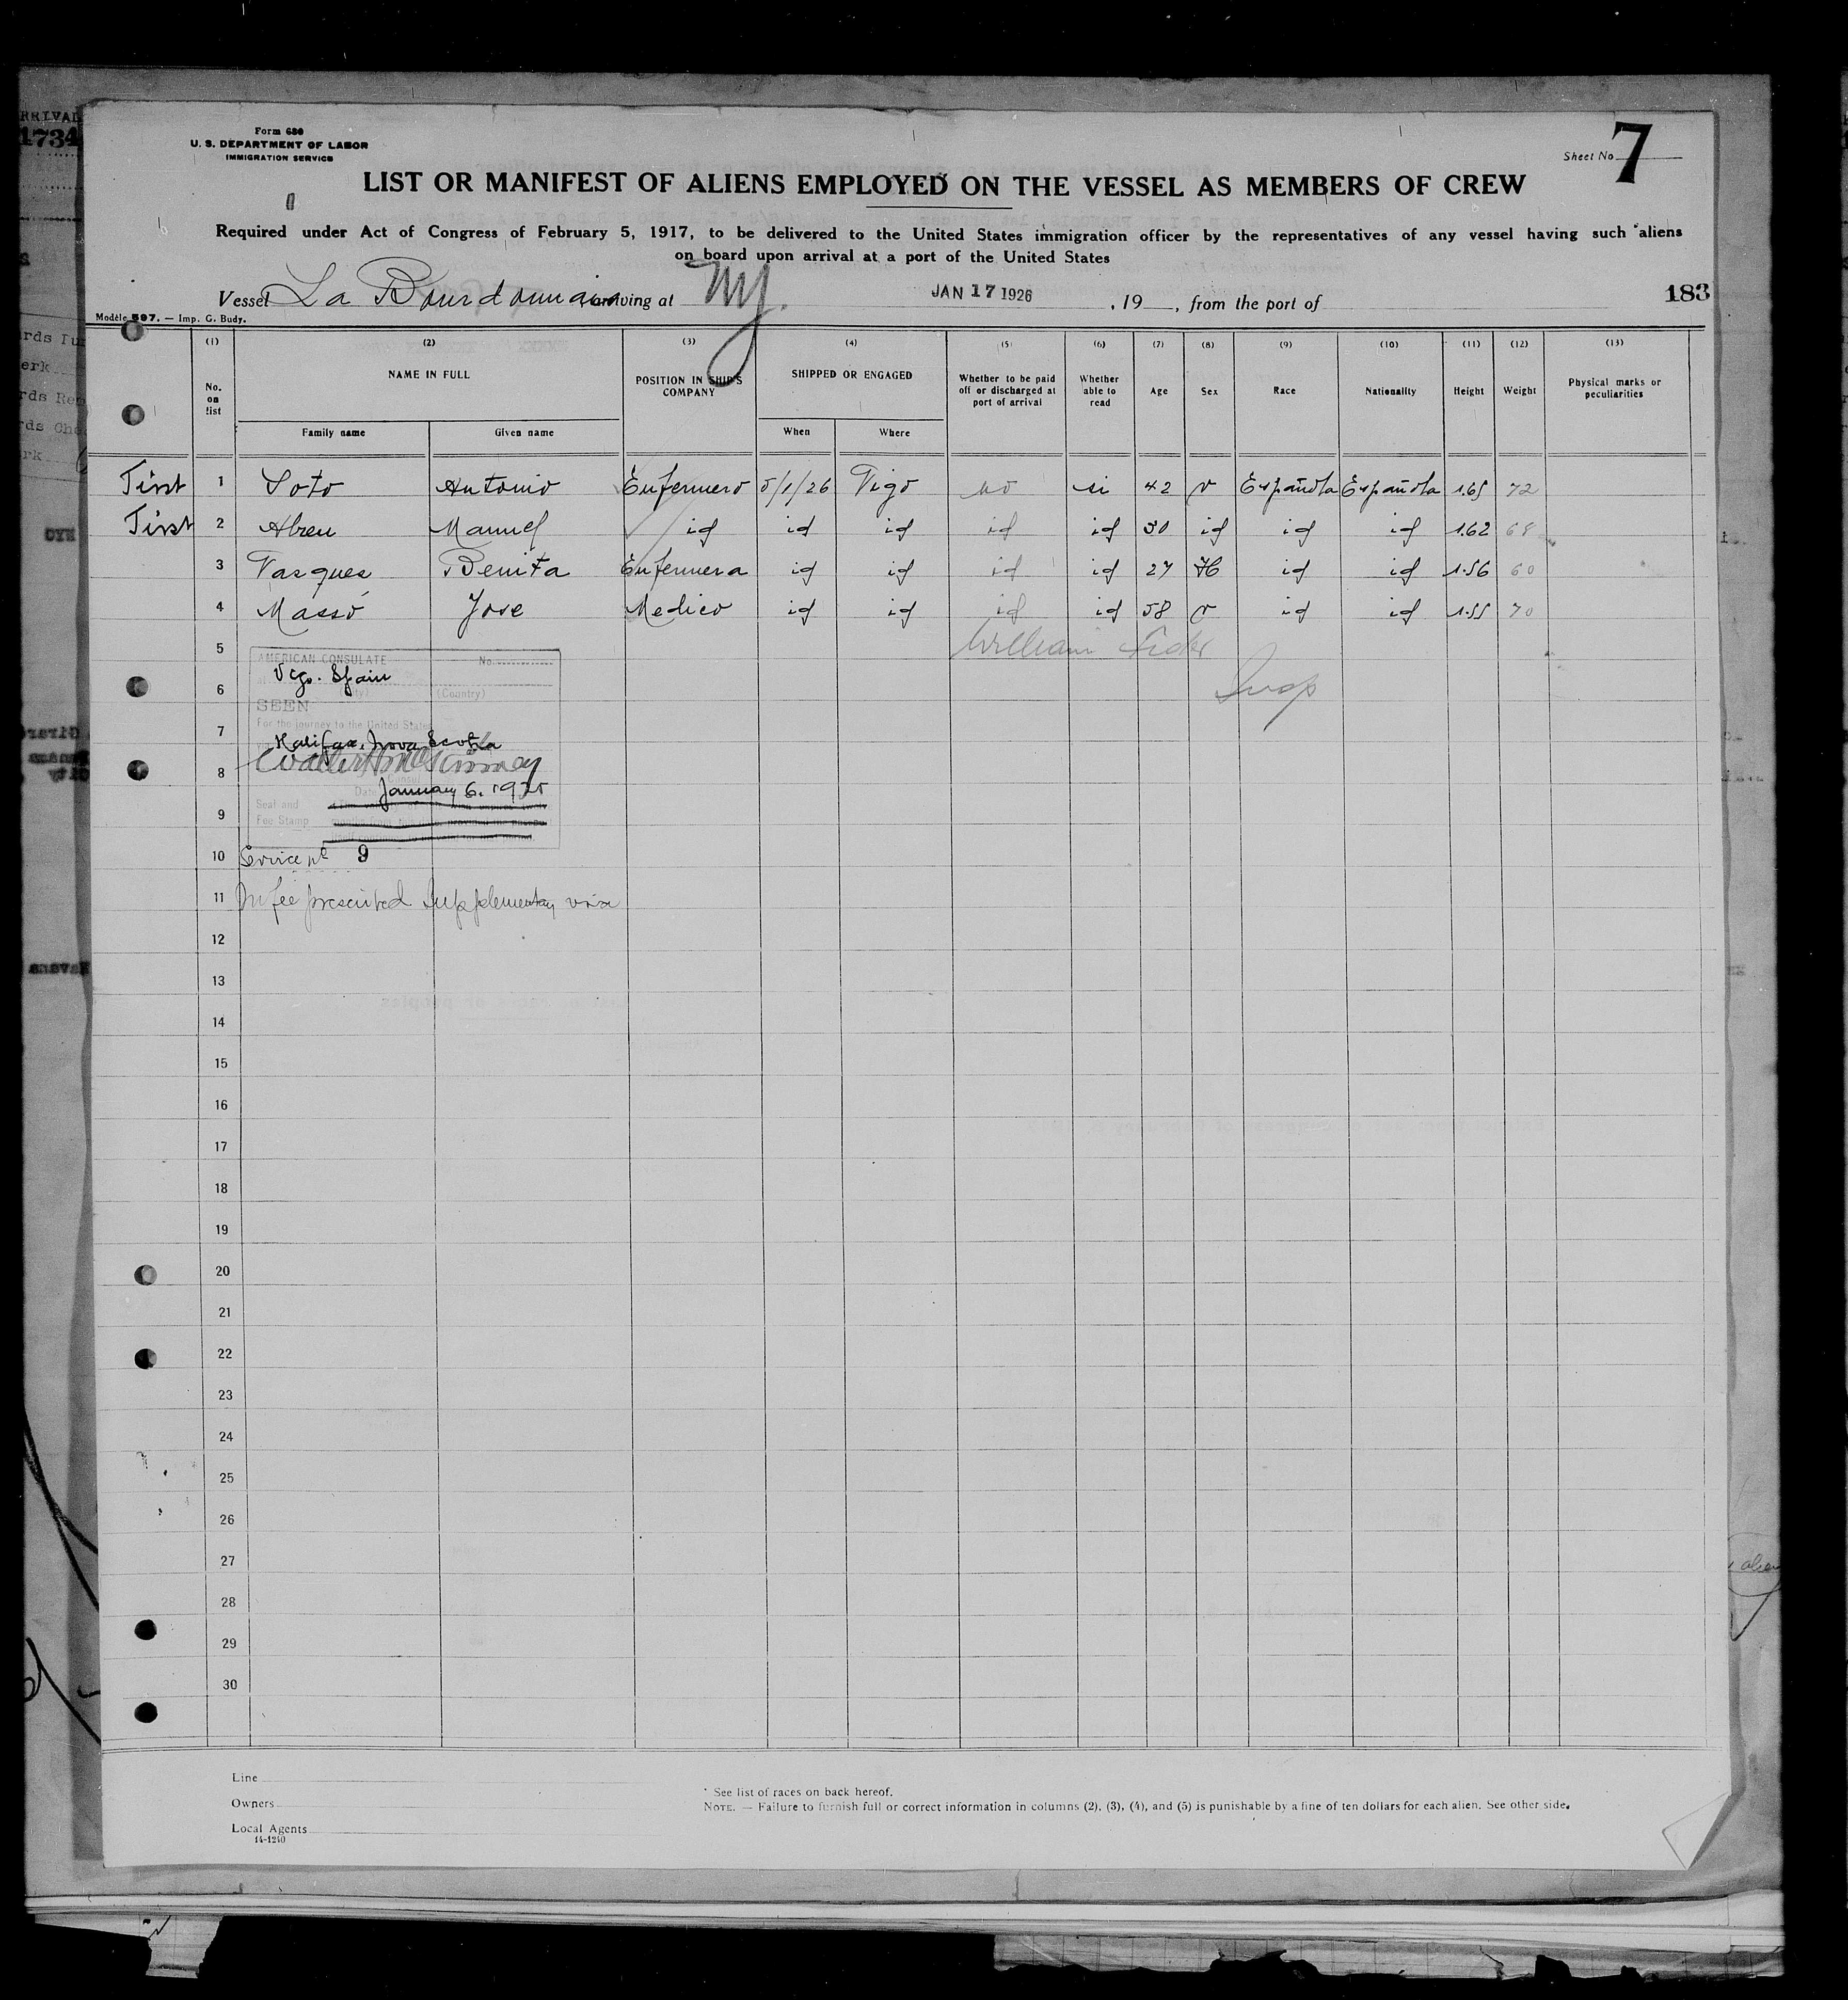 RRIVAL
1734
Form 680
U. S. DEPARTMENT OF LABOR
IMMIGRATION SERVICE
Sheet No 7
LIST OR MANIFEST OF ALIENS EMPLOYED ON THE VESSEL AS MEMBERS OF CREW
Required under Act of Congress of February 5, 1917, to be delivered to the United States immigration officer by the representatives of any vessel having such *aliens
on board upon arrival at a port of the United States
Vessel La Bourdonnais arriving at NY. JAN 17 1926 , 19 , from the port of
183
Modèle 597. — Imp. G. Budy.
(1) (2) (3) (4) (5) (6) (7) (8) (9) (10) (11) (12) (13)
No. on list NAME IN FULL POSITION IN SHIP'S COMPANY SHIPPED OR ENGAGED Whether to be paid off or discharged at port of arrival Whether able to read Age Sex Race Nationality Height Weight Physical marks or peculiarities
Family name Given name When Where
First 1 Soto Antonio Enfermero 5/1/26 Vigo no si 42 v Española Española 1.65 72
First 2 Abreu Manuel id id id id id 30 id id id 1.62 68
3 Vasques Benita Enfermera id id id id 27 H id id 1.56 60
4 Massó Jose Medico id id id id 58 v id id 1.55 70
5 William
AMERICAN CONSULATE No.
Vigo. Spain
(Country)
6 Insp
SEEN
For the journey to the United States
7
Halifax, Nova Scotia
8
January 6. 1926
Seal and
9
Fee Stamp
10 Service No 9
11 No fee prescribed Supplementary visa
12
13
14
15
16
17
18
19
20
21
22
23
24
25
26
27
28
29
30
Line
Owners
Local Agents
14-1240
* See list of races on back hereof.
NOTE. — Failure to furnish full or correct information in columns (2), (3), (4), and (5) is punishable by a fine of ten dollars for each alien. See other side.